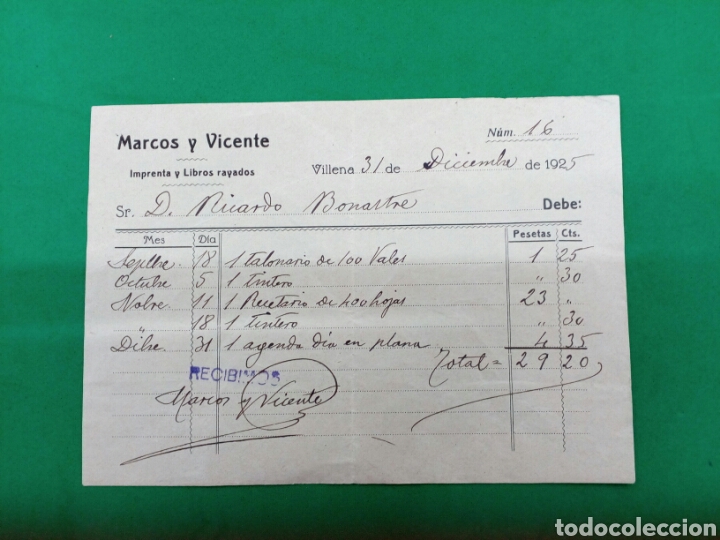 Marcos y Vicente
Imprenta y Libros rayados
Núm. 16
Villena 31 de Diciembre de 1925
Sr. D. Ricardo Bonastre Debe:
Mes Día Pesetas Cts.
Sepbre 18 1 talonario de 100 Vales 1 25
Octubre 5 1 tintero " 30
Nobre 11 1 Recetario de 400 hojas 23 "
" 18 1 tintero " 30
Dibre 31 1 agenda día en plana 4 35
Total = 29 20
RECIBIMOS
Marcos y Vicente
todocoleccion